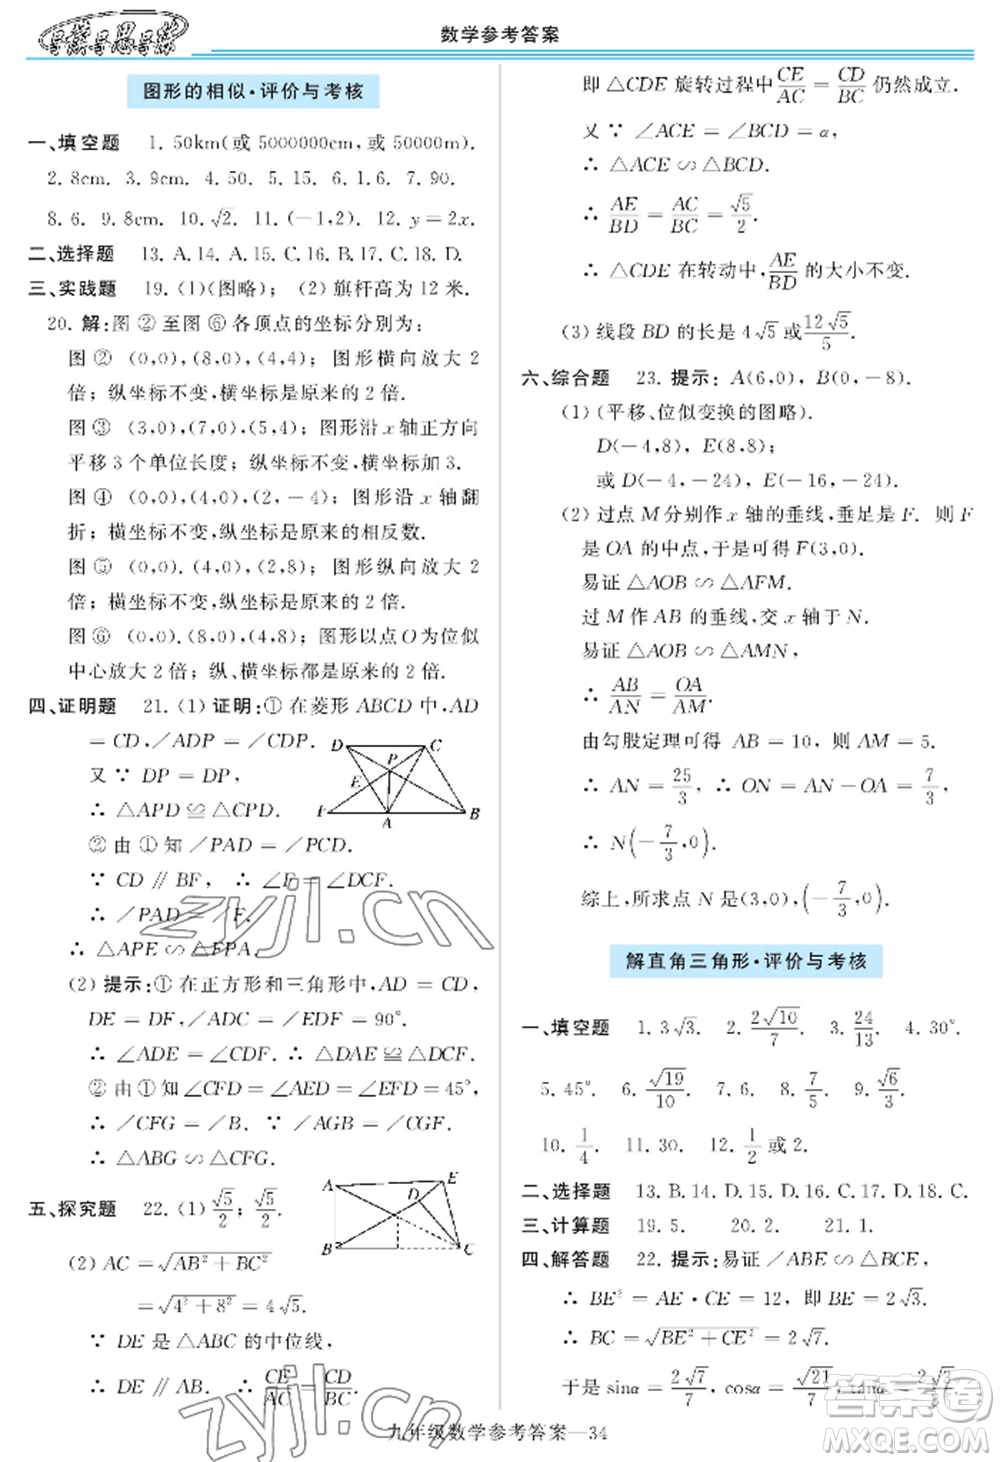 导学导思导练
数学参考答案
图形的相似·评价与考核
一、填空题 1. 50km(或 5000000cm,或 50000m).
2. 8cm. 3. 9cm. 4. 50. 5. 15. 6. 1. 7. 90.
8. 6. 9. 8cm. 10. √2. 11. (-1,2). 12. y=2x.
二、选择题 13. A. 14. A. 15. C. 16. B. 17. C. 18. D.
三、实践题 19. (1)(图略); (2) 旗杆高为 12 米.
20. 解:图 ② 至图 ⑥ 各顶点的坐标分别为:
图 ② (0,0),(8,0),(4,4); 图形横向放大 2
倍; 纵坐标不变,横坐标是原来的 2 倍.
图 ③ (3,0),(7,0),(5,4); 图形沿 x 轴正方向
平移 3 个单位长度; 纵坐标不变,横坐标加 3.
图 ④ (0,0),(4,0),(2,-4); 图形沿 x 轴翻
折; 横坐标不变,纵坐标是原来的相反数.
图 ⑤ (0,0),(4,0),(2,8); 图形纵向放大 2
倍; 横坐标不变,纵坐标是原来的 2 倍.
图 ⑥ (0,0),(8,0),(4,8); 图形以点O为位似
中心放大 2 倍; 纵、横坐标都是原来的 2 倍.
四、证明题 21. (1) 证明:① 在菱形 ABCD 中,AD
=CD,∠ADP=∠CDP.
又 ∵ DP=DP,
∴ △APD≌△CPD.
② 由 ① 知 ∠PAD=∠PCD.
∵ CD∥BF, ∴ ∠F=∠DCF.
∴ ∠PAD=∠F.
∴ △APE∽△FPA.
D C P E F A B
(2) 提示:① 在正方形和三角形中,AD=
DE=DF,∠ADC=∠EDF=90°.
∴ ∠ADE=∠CDF. ∴ △DAE≌△DCF.
② 由 ① 知 ∠CFD=∠AED=∠EFD=45°,
∴ ∠CFG=∠B. ∵ ∠AGB=∠CGF.
∴ △ABG∽△CFG.
五、探究题 22. (1) √5/2; √5/2.
(2) AC=√(AB²+BC²)
=√(4²+8²)=4√5.
A E D B C
∵ DE 是 △ABC 的中位线,
∴ DE∥AB. ∴ CE/AC=CD/BC.
即 △CDE 旋转过程中 CE/AC=CD/BC 仍然成立.
又 ∵ ∠ACE=∠BCD=α,
∴ △ACE∽△BCD.
∴ AE/BD=AC/BC=√5/2.
∴ △CDE 在转动中, AE/BD 的大小不变.
(3) 线段 BD 的长是 4√5 或 12√5/5.
六、综合题 23. 提示: A(6,0), B(0,-8).
(1) (平移、位似变换的图略).
D(-4,8), E(8,-24);
或 D(-4,-24), E(-16,-24).
(2) 过点 M 分别作 x 轴的垂线,垂足是 F. 则 F
是 OA 的中点,于是可得 F(3,0).
易证 △AOB∽△AFM.
过 M 作 AB 的垂线,交 x 轴于 N.
易证 △AOB∽△AMN,
∴ AB/AN=OA/AM.
由勾股定理可得 AB=10, 则 AM=5.
∴ AN=25/3, ∴ ON=AN-OA=7/3,
∴ N(-7/3,0).
综上,所求点 N 是(3,0),(-7/3,0).
解直角三角形·评价与考核
一、填空题 1. 3√3. 2. 2√10/7. 3. 24/13. 4. 30°.
5. 45°. 6. √19/10. 7. 6. 8. 7/5. 9. √6/3.
10. 1/4. 11. 30. 12. 1/2 或 2.
二、选择题 13. B. 14. D. 15. D. 16. B. 17. D. 18. C.
三、计算题 19. 5. 20. 2. 21. 1.
四、解答题 22. 提示:易证 ∠ABE∽△BCE,
∴ BE²=AE·CE=12, 即 BE=2√3.
∴ BC=√(BE²+CE²)=2√7.
于是 sinα=2√7/7, cosα=√21/7, tanα=2√3/3
九年级数学参考答案—34
zyjl.cn
zyjl.cn
答案圈
MXQE.COM